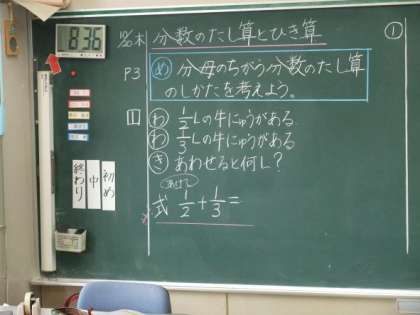 836
木 分数のたし算とひき算
①
P3 め 分母のちがう分数のたし算
のしかたを考えよう。
1 わ 1/2Lの牛にゅうがある
わ 1/3Lの牛にゅうがある
き あわせると何L?
あわせて
式 1/2+1/3=
初め
中
終わり